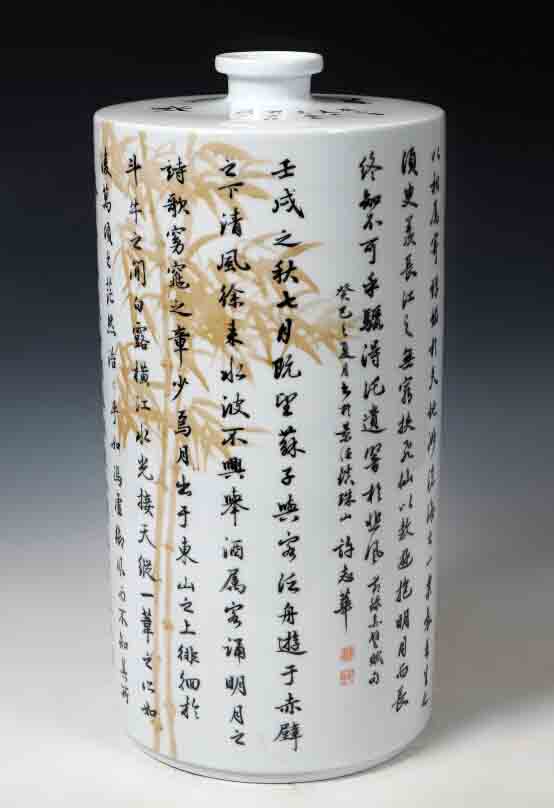 以相屬寄蜉蝣於天地渺滄海之一粟哀吾生之
須臾羨長江之無窮挾飛仙以遨遊抱明月而長
終知不可乎驟得託遺響於悲風 前錄赤壁賦句
癸巳之夏月書於景德鎮珠山 許志華
壬戌之秋七月既望蘇子與客泛舟遊于赤壁
之下清風徐來水波不興舉酒屬客誦明月之
詩歌窈窕之章少焉月出于東山之上徘徊於
斗牛之間白露橫江水光接天縱一葦之所如
凌萬頃之茫然浩乎如馮虛御風而不知其所